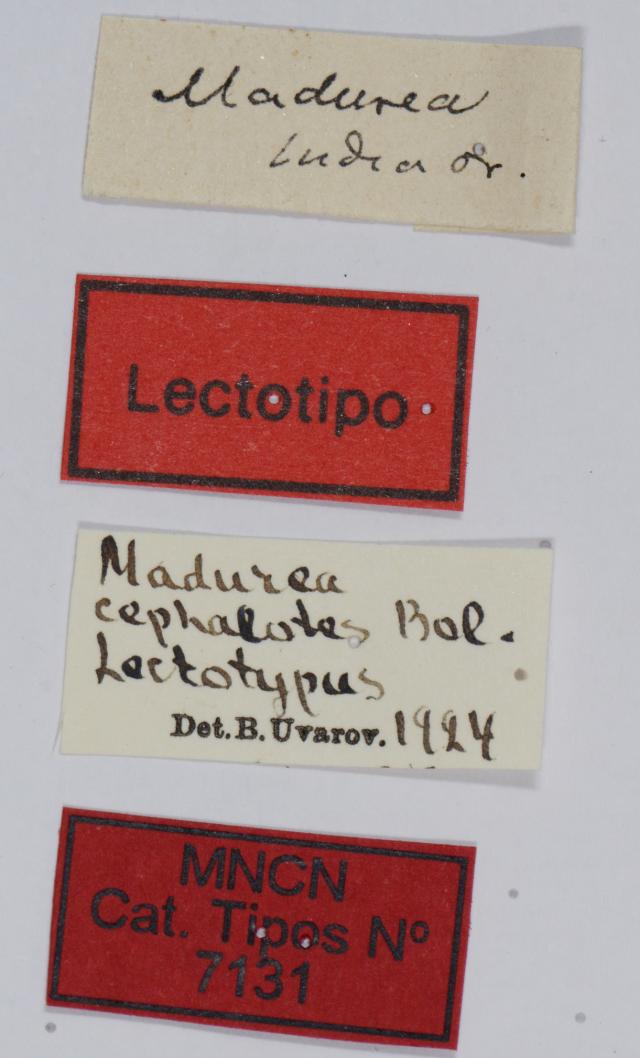 Madurea
India or.
Lectotipo
Madurea
cephalotes Bol.
Lectotypus
Det. B. Uvarov. 1924
MNCN
Cat. Tipos Nº
7131